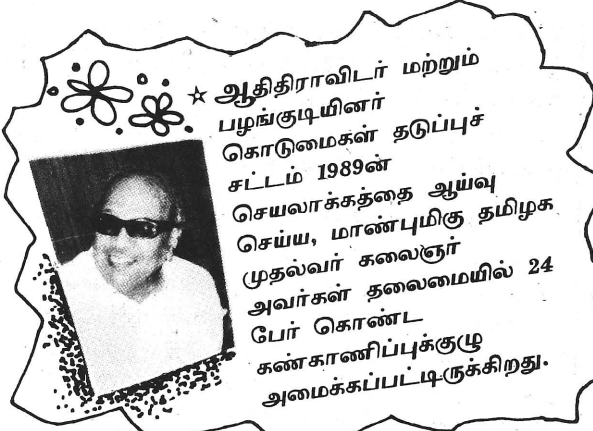 ☆ ஆதிதிராவிடர் மற்றும்
பழங்குடியினர்
கொடுமைகள் தடுப்புச்
சட்டம் 1989ன்
செயலாக்கத்தை ஆய்வு
செய்ய, மாண்புமிகு தமிழக
முதல்வர் கலைஞர்
அவர்கள் தலைமையில் 24
பேர் கொண்ட
கண்காணிப்புக்குழு
அமைக்கப்பட்டிருக்கிறது.